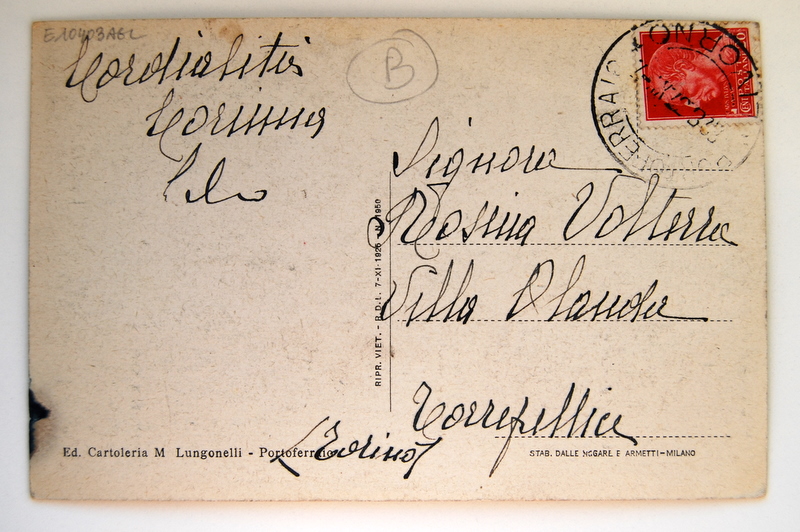 E10403AEL
B
Cordialità
Corinna
Lelo
Signora
Rosina Volterra
Villa Olanda
Torrepellice
(Torino)
RIPR. VIET. - R.D.L. 7-XI-1925 - N. 1950
Ed. Cartoleria M Lungonelli - Portoferraio
STAB. DALLE NOGARE E ARMETTI - MILANO